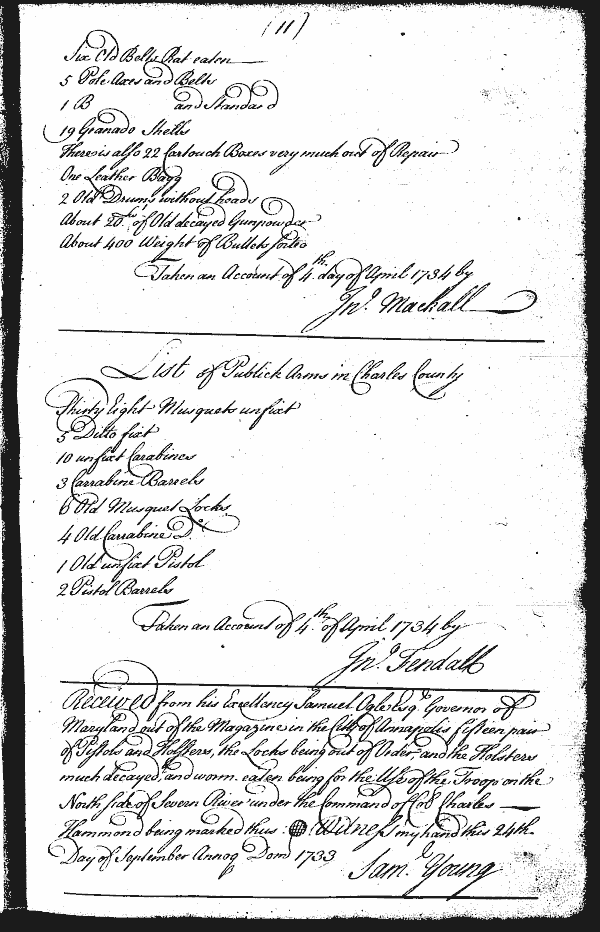 (11)
Six Old Belts Rat eaten
5 Pole Axes and Belts
1 B and Standard
19 Granado Shells
There is also 22 Cartouch Boxes very much out of Repair
One Leather Bagg
2 Old Drums without heads
About 20 of Old decayed Gunpowder
About 400 Weight of Bullets
Taken an Account of 4th day of April 1734 by
Jno. Mackall
List of Publick Arms in Charles County
Thirty Eight Musquets unfixt
5 Ditto fixt
10 unfixt Carabines
3 Carrabine Barrels
6 Old Musquet Locks
4 Old Carrabine Do.
1 Old unfixt Pistol
2 Pistol Barrels
Taken an Account of 4th of April 1734 by
Jno. Fendall
Received from his Excellency Samuel Ogle Esqr. Governor of
Maryland out of the Magazine in the City of Annapolis fifteen pair
of Pistols and Holsters, the Locks being out of Order, and the Holsters
much decayed, and worm eaten being for the Use of the Troop on the
North side of Severn River under the Command of Col. Charles
Hammond being marked thus: Witness my hand this 24th
Day of September Annoq Dom 1733
Saml. Young